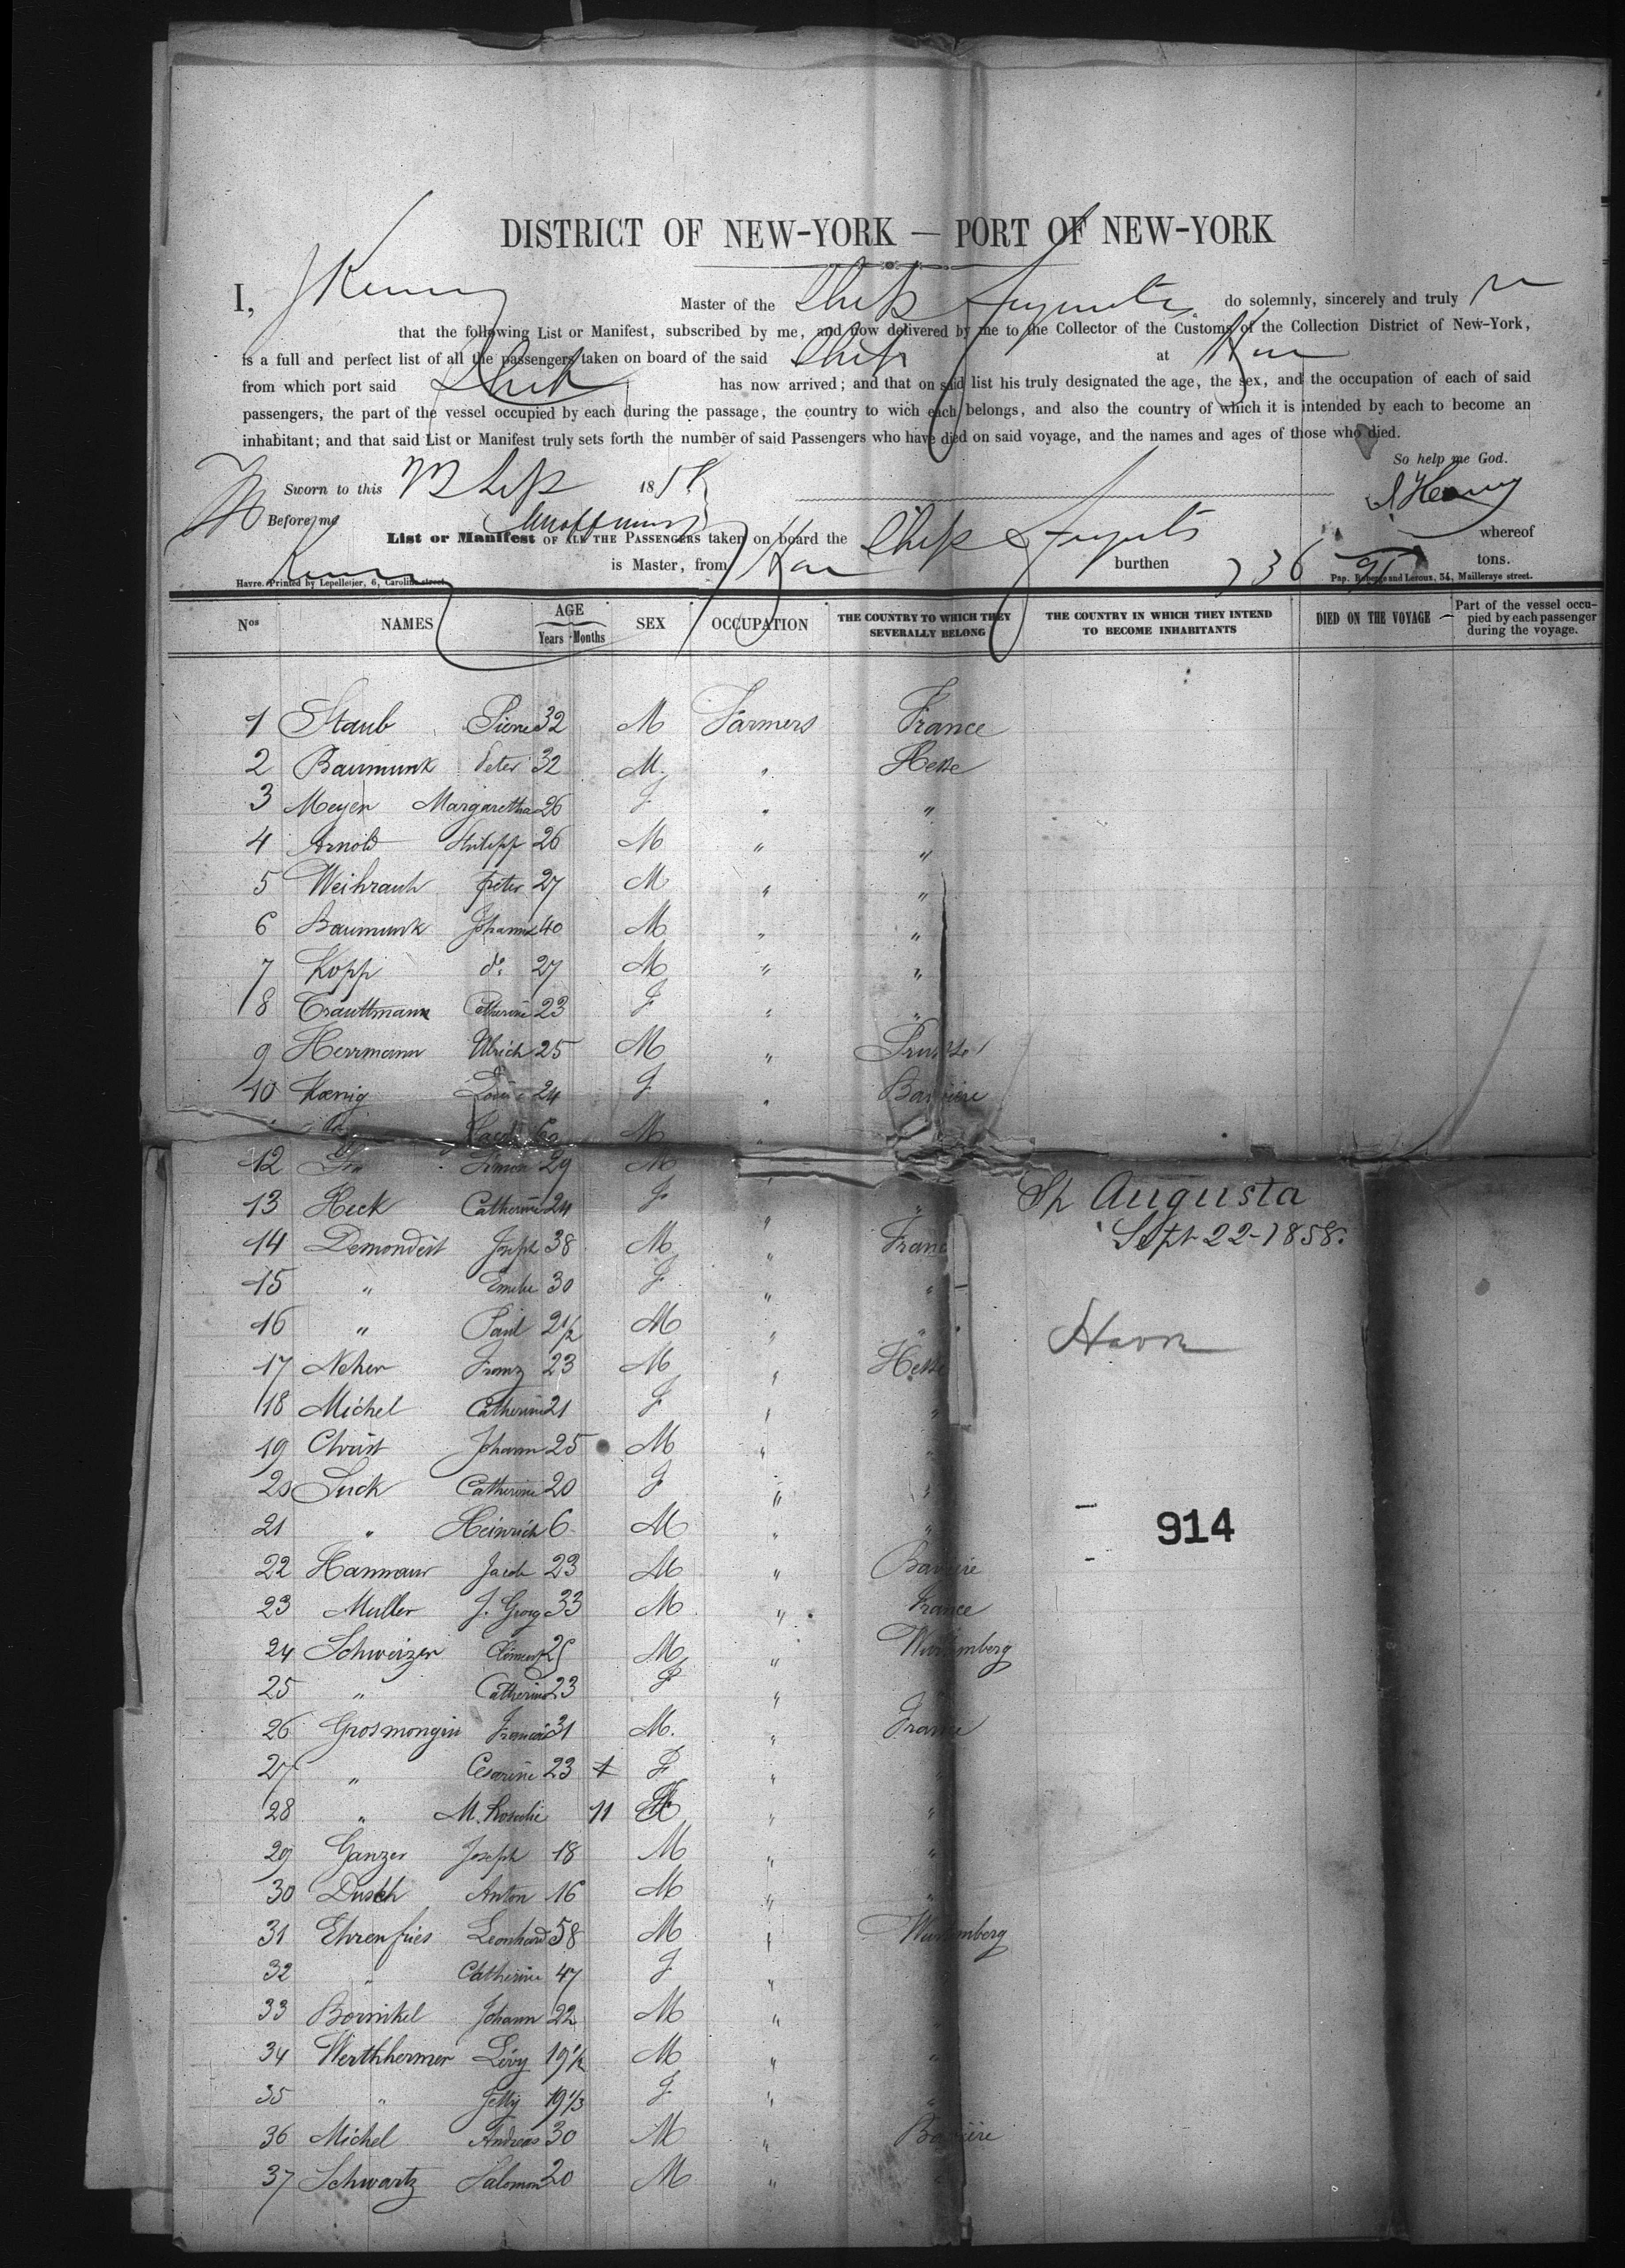 DISTRICT OF NEW-YORK — PORT OF NEW-YORK
I, Master of the Ship Augusta do solemnly, sincerely and truly
that the following List or Manifest, subscribed by me, and now delivered by me to the Collector of the Customs of the Collection District of New-York,
is a full and perfect list of all the passengers taken on board of the said Ship at
from which port said Ship has now arrived; and that on said list his truly designated the age, the sex, and the occupation of each of said
passengers, the part of the vessel occupied by each during the passage, the country to wich each belongs, and also the country of which it is intended by each to become an
inhabitant; and that said List or Manifest truly sets forth the number of said Passengers who have died on said voyage, and the names and ages of those who died.
So help me God.
Sworn to this 18
Before me
List or Manifest OF ALL THE PASSENGERS taken on board the Ship Augusta whereof
is Master, from burthen 736 tons.
Havre. Printed by Lepelletier, 6, Caroline street. Pap. Roberge and Leroux, 54, Mailleraye street.
Nos NAMES AGE Years Months SEX OCCUPATION THE COUNTRY TO WHICH THEY SEVERALLY BELONG THE COUNTRY IN WHICH THEY INTEND TO BECOME INHABITANTS DIED ON THE VOYAGE Part of the vessel occupied by each passenger during the voyage.
1 Staub Pierre 32 M Farmers France
2 Baumunk Peter 32 M " Hesse
3 Meyer Margaretha 26 F " "
4 Arnold Philipp 26 M " "
5 Weihrauh Peter 27 M " "
6 Baumunk Johannes 40 M " "
7 Kopp do 27 M " "
8 Trauttmann Catherine 23 F " "
9 Herrmann Ulrich 25 M " Prusse
10 Kœnig Louise 24 F " Bavière
Jacob 60 M "
12 Simon 29 M "
13 Heck Catherine 24 F " "
Sp Augusta
14 Demondest Joseph 38 M " France
Sept 22-1858.
15 " Emilie 30 F " "
16 " Paul 2 1/2 M " "
Havre
17 Neher Franz 23 M " Hesse
18 Michel Catherine 21 F " "
19 Christ Johann 25 M " "
20 Luck Catherine 20 F " "
21 " Heinrich 6 M " "
914
22 Hammann Jacob 23 M " Bavière
23 Muller J. Georg 33 M " France
24 Schweizer Clemens 25 M " Wurtemberg
25 " Catherine 23 F "
26 Grosmongin Francois 31 M. " France
27 " Cesarine 23 F "
28 " M. Rosalie 11 F " "
29 Ganzer Joseph 18 M " "
30 Dusch Anton 16 M " "
31 Ehrenfries Leonhard 58 M " Wurtemberg
32 " Catherine 47 F "
33 Bornikel Johann 22 M "
34 Werthhermer Lévy 19 1/2 M " "
35 " Jetty 19 1/3 F " "
36 Michel Andreas 30 M " Bavière
37 Schwartz Salomon 20 M "